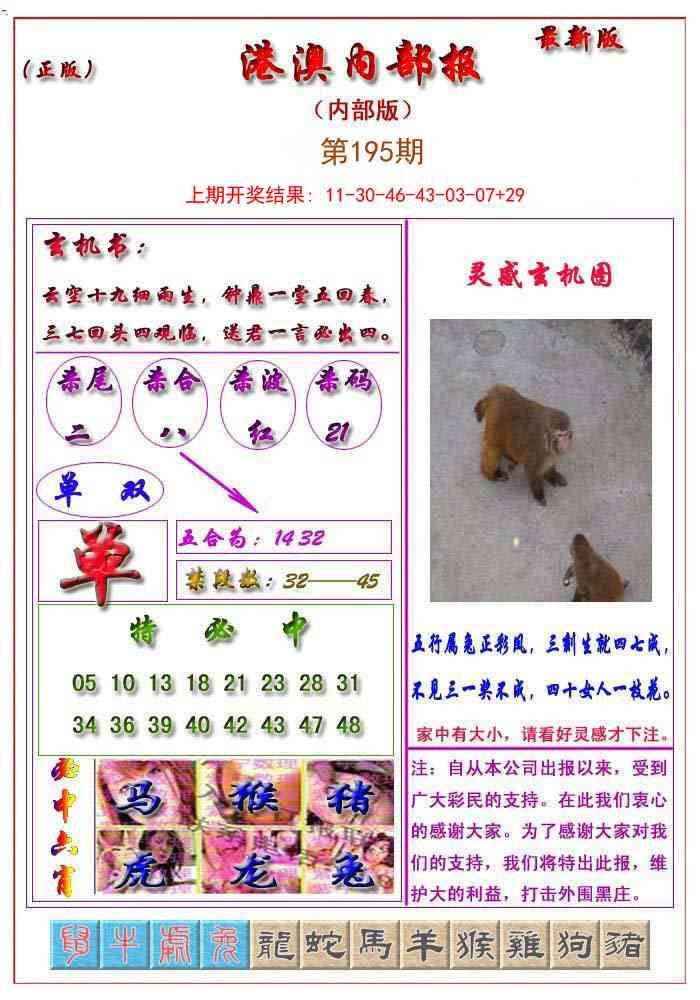 港澳内部报
最新版
(正版)
（内部版）
第195期
上期开奖结果: 11-30-46-43-03-07+29
玄机书：
云空十九细雨生，钟鼎一堂五回春，
三七回头四观临，送君一言必出四。
杀尾 杀合 杀波 杀码
二 八 红 21
单 双
单
五合为：14 32
禁段数：32——45
特 必 中
05 10 13 18 21 23 28 31
34 36 39 40 42 43 47 48
必中六肖
马 猴 猪
虎 龙 兔
灵感玄机图
五行属兔正彩凤，三割生就四七成，
不见三一奖不成，四十女人一枝花。
家中有大小，请看好灵感才下注。
注：自从本公司出报以来，受到
广大彩民的支持。在此我们衷心
的感谢大家。为了感谢大家对我
们的支持，我们将特出此报，维
护大的利益，打击外围黑庄。
鼠 牛 虎 兔 龍 蛇 馬 羊 猴 雞 狗 豬